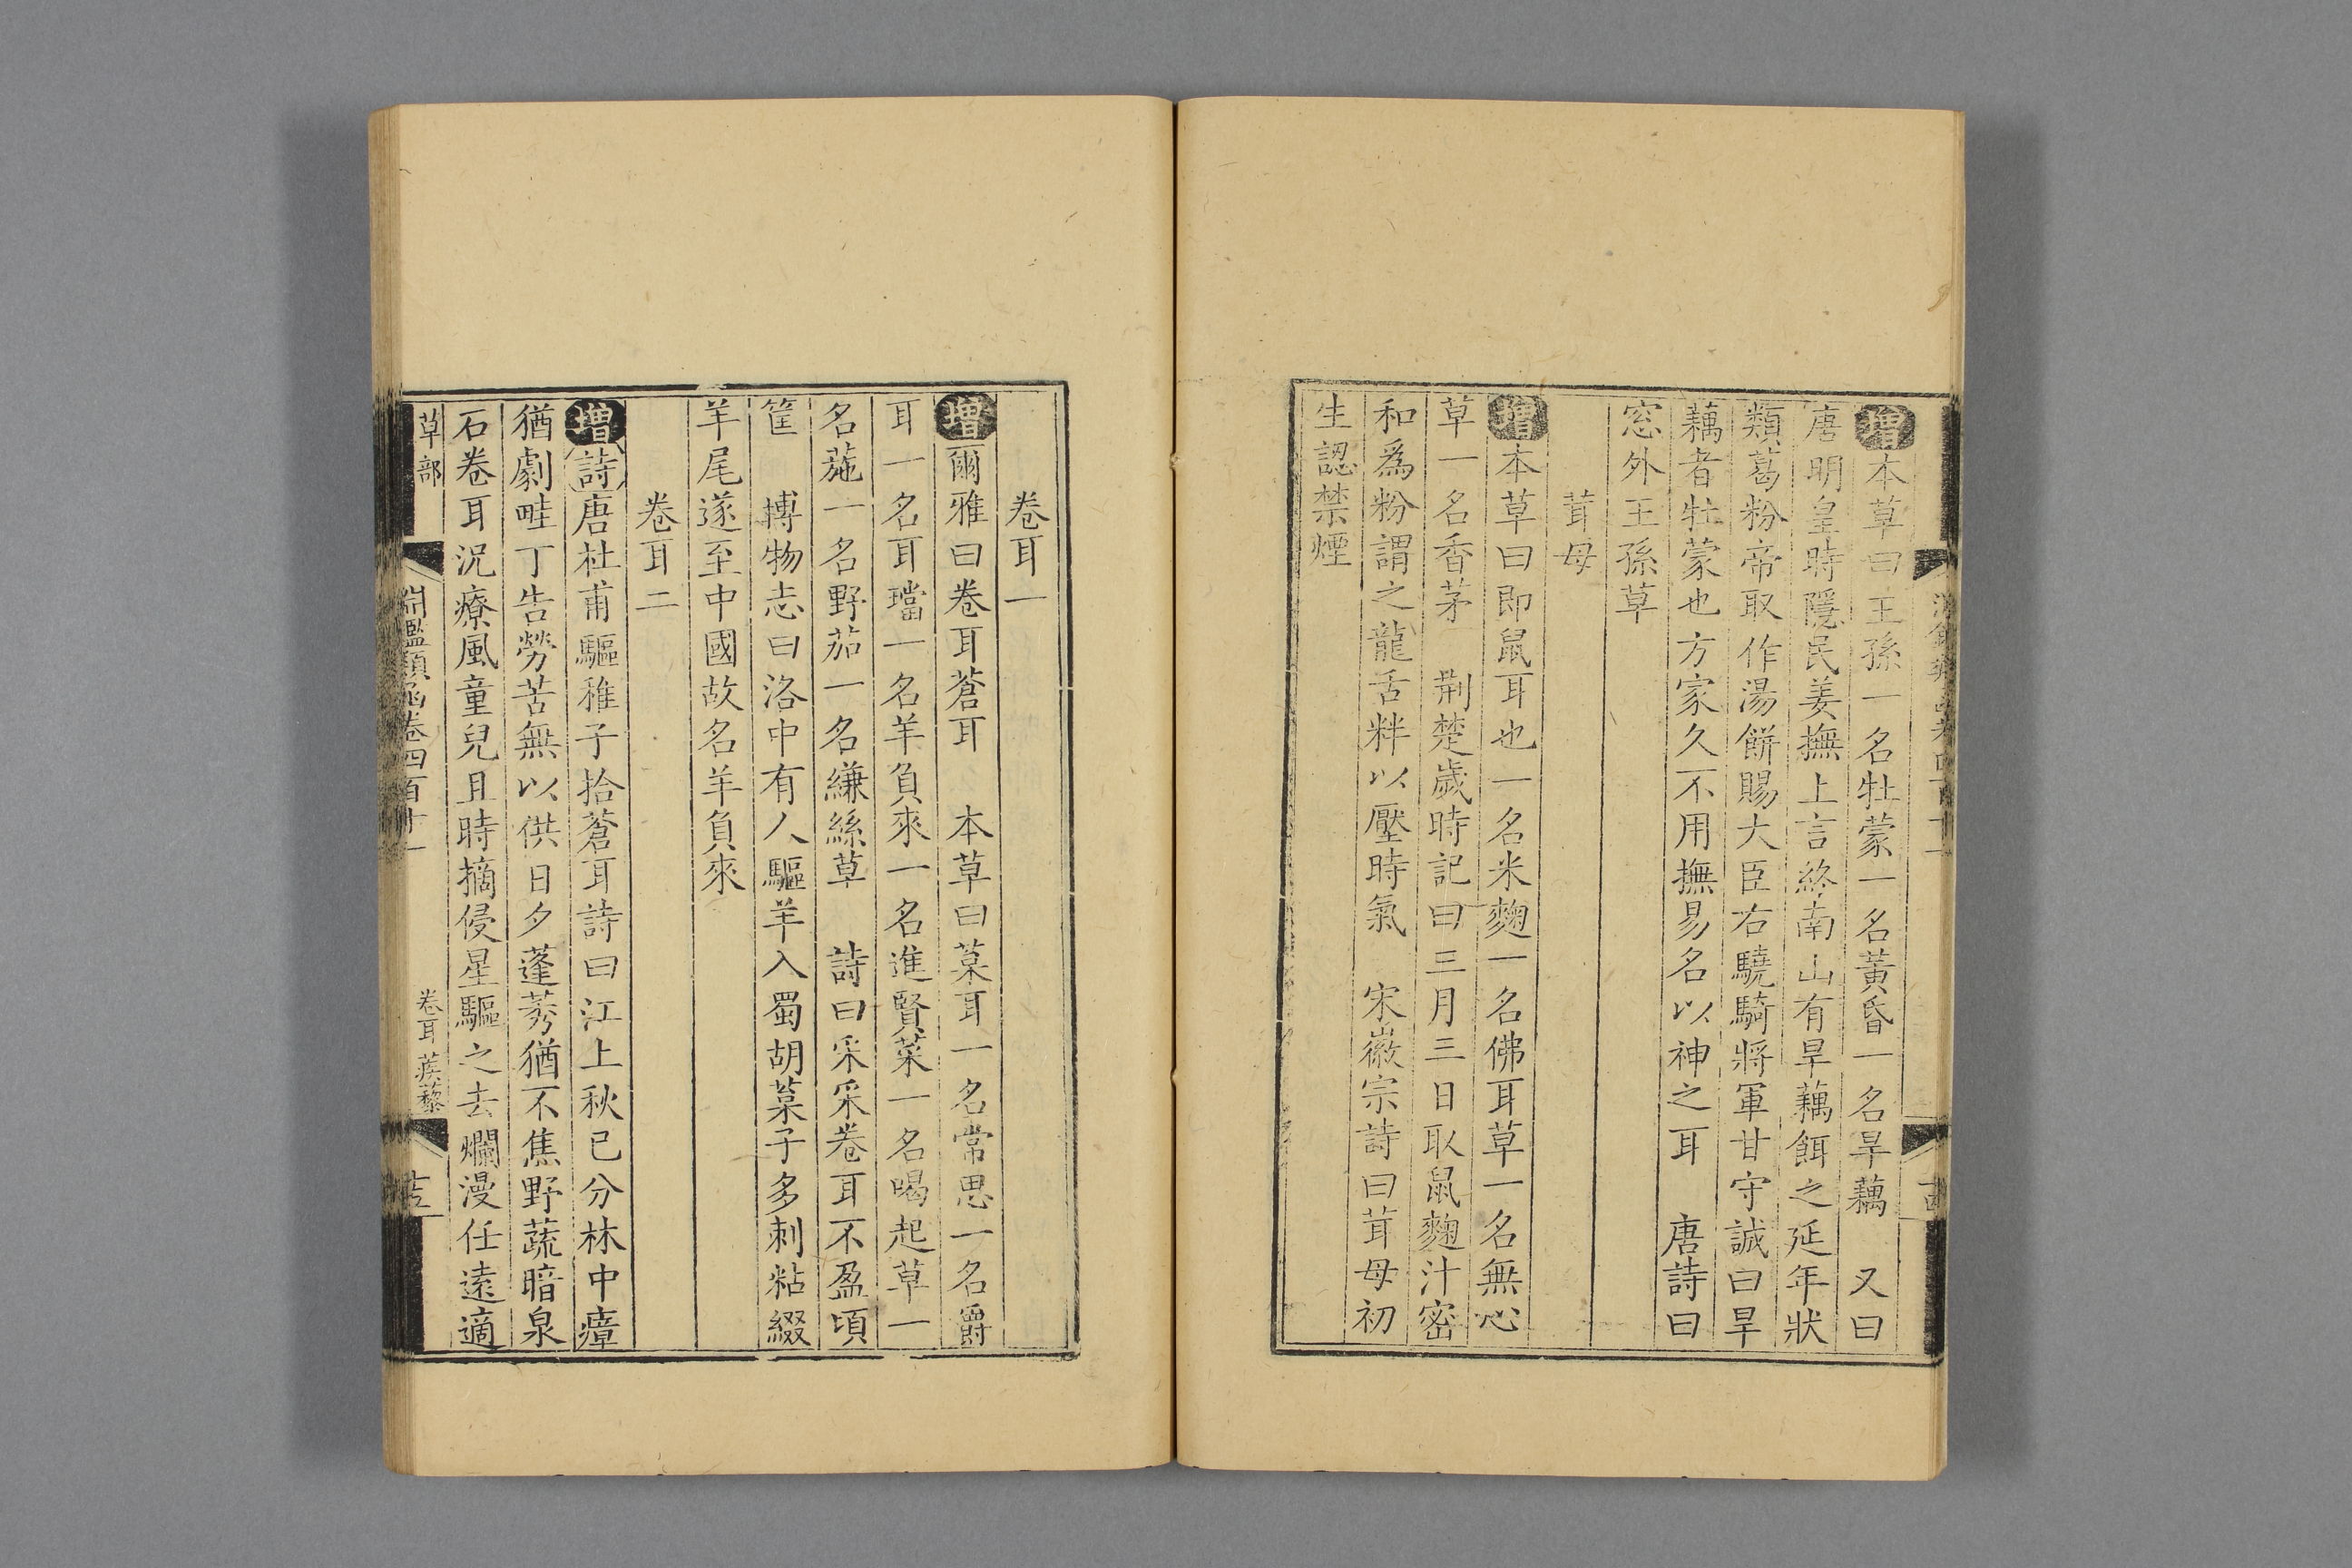 增本草曰王孫一名牡蒙一名黃昏一名旱藕　又曰
唐明皇時隱民姜撫上言終南山有旱藕餌之延年狀
類葛粉帝取作湯餅賜大臣右驍騎將軍甘守誠曰旱
藕者牡蒙也方家久不用撫易名以神之耳　唐詩曰
窓外王孫草
茸母
增本草曰即鼠耳也一名米麴一名佛耳草一名無心
草一名香茅　荆楚歲時記曰三月三日取鼠麴汁密
和爲粉謂之龍舌粁以壓時氣　宋徽宗詩曰茸母初
生認禁煙
卷耳一
增爾雅曰卷耳蒼耳　本草曰葈耳一名常思一名爵
耳一名耳璫一名羊負來一名進賢菜一名喝起草一
名葹一名野茄一名縑絲草　詩曰采采卷耳不盈頃
筐　搏物志曰洛中有人驅羊入蜀胡葈子多刺粘綴
羊尾遂至中國故名羊負來
卷耳二
增詩唐杜甫驅稚子拾蒼耳詩曰江上秋已分林中瘴
猶劇畦丁告勞苦無以供日夕蓬莠猶不焦野蔬暗泉
石卷耳況療風童兒且時摘侵星驅之去爛漫任遠適
草部
淵鑑類函卷四百十一
卷耳 蒺藜
十五